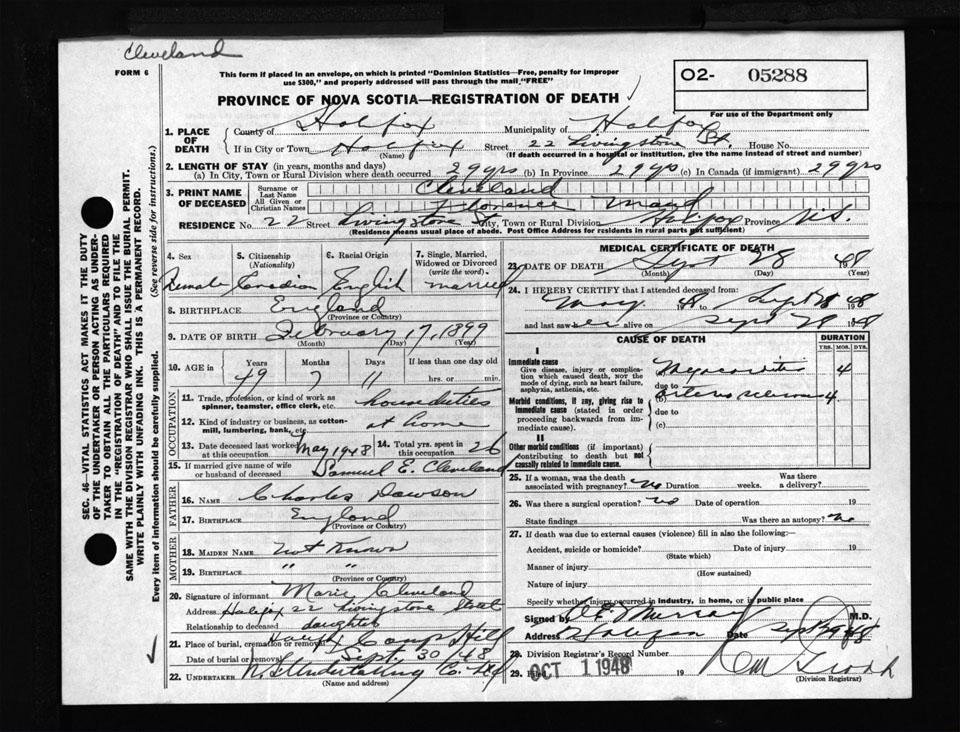 Cleveland
FORM 6
This form if placed in an envelope, on which is printed "Dominion Statistics—Free, penalty for improper
use $300," and properly addressed will pass through the mail "FREE"
O2- 05288
For use of the Department only
PROVINCE OF NOVA SCOTIA—REGISTRATION OF DEATH
1. PLACE OF DEATH
County of Halifax Municipality of Halifax
If in City or Town Halifax Street 22 Livingstone St. House No.
(Name) (If death occurred in a hospital or institution, give the name instead of street and number)
2. LENGTH OF STAY (in years, months and days)
(a) In City, Town or Rural Division where death occurred 29 yrs (b) In Province 29 yrs (c) In Canada (if immigrant) 29 yrs
3. PRINT NAME OF DECEASED
Surname or Last Name Cleveland
All Given or Christian Names Florence Maud
RESIDENCE No. 22 Street Livingstone St City, Town or Rural Division Halifax Province N.S.
(Residence means usual place of abode. Post Office Address for residents in rural parts not sufficient)
4. Sex Female
5. Citizenship (Nationality) Canadian
6. Racial Origin English
7. Single, Married, Widowed or Divorced (write the word) married
8. BIRTHPLACE England
(Province or Country)
9. DATE OF BIRTH February 17, 1899
(Month) (Day) (Year)
10. AGE in Years Months Days If less than one day old
49 7 11 hrs. or min.
OCCUPATION
11. Trade, profession, or kind of work as spinner, teamster, office clerk, etc. house duties
12. Kind of industry or business, as cotton-mill, lumbering, bank, etc. at home
13. Date deceased last worked at this occupation May 1948
14. Total yrs. spent in this occupation 26
15. If married give name of wife or husband of deceased Samuel E. Cleveland
FATHER
16. NAME Charles Dawson
17. BIRTHPLACE England
(Province or Country)
MOTHER
18. MAIDEN NAME not Known
19. BIRTHPLACE " "
(Province or Country)
20. Signature of informant Marie Cleveland
Address Halifax 22 Livingstone Street
Relationship to deceased daughter
21. Place of burial, cremation or removal Camp Hill
Date of burial or removal Sept. 30/48
22. UNDERTAKER N.S. Undertaking Co. Ltd
(Name and address)
MEDICAL CERTIFICATE OF DEATH
23. DATE OF DEATH Sept 28 1948
(Month) (Day) (Year)
24. I HEREBY CERTIFY that I attended deceased from:
May 1948 to Sept 28 1948
and last saw her alive on Sept 28 1948
CAUSE OF DEATH
DURATION
YRS. MOS. DYS.
I
Immediate cause
Give disease, injury or complication which caused death, not the mode of dying, such as heart failure, asphyxia, asthenia, etc.
Myocarditis 4
due to
Morbid conditions, if any, giving rise to immediate cause (stated in order proceeding backwards from immediate cause).
(b) 4
due to
(c)
II
Other morbid conditions (if important) contributing to death but not causally related to immediate cause.
25. If a woman, was the death associated with pregnancy? No Duration weeks. Was there a delivery?
26. Was there a surgical operation? No Date of operation 19
State findings Was there an autopsy? No
27. If death was due to external causes (violence) fill in also the following:
Accident, suicide or homicide? Date of injury 19
(State which)
Manner of injury
(How sustained)
Nature of injury
Specify whether injury occurred in Industry, in home, or in public place
Signed by Murray M.D.
Address Halifax Date Sept 29 1948
28. Division Registrar's Record Number
29. Filed OCT 1 1948 19
(Division Registrar)
SEC. 46—VITAL STATISTICS ACT MAKES IT THE DUTY
OF THE UNDERTAKER OR PERSON ACTING AS UNDERTAKER TO OBTAIN ALL THE PARTICULARS REQUIRED
IN THE "REGISTRATION OF DEATH" AND TO FILE THE
SAME WITH THE DIVISION REGISTRAR WHO SHALL ISSUE THE BURIAL PERMIT.
WRITE PLAINLY WITH UNFADING INK. THIS IS A PERMANENT RECORD.
Every item of information should be carefully supplied. (See reverse side for instructions.)